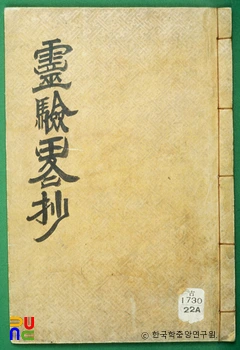 靈驗畧抄
W
1730
22A
PUNC
© 한국학중앙연구원